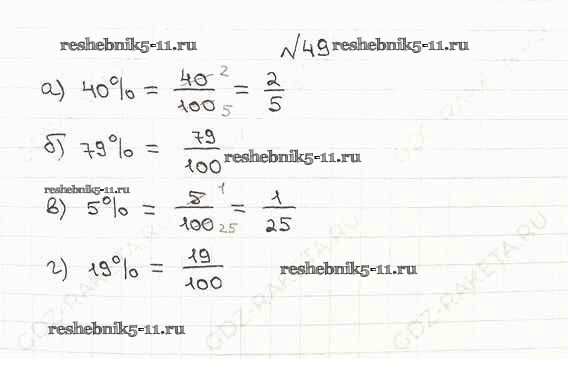 reshebnik5-11.ru №49 reshebnik5-11.ru
а) 40% = 40/100 2 5 = 2/5
б) 79% = 79/100 reshebnik5-11.ru
reshebnik5-11.ru
в) 5% = 5/100 1 25 = 1/25
г) 19% = 19/100 reshebnik5-11.ru
reshebnik5-11.ru
GDZ-RAKETA.RU
GDZ-RAKETA.RU
GDZ-RAKETA.RU
GDZ-RAKETA.RU